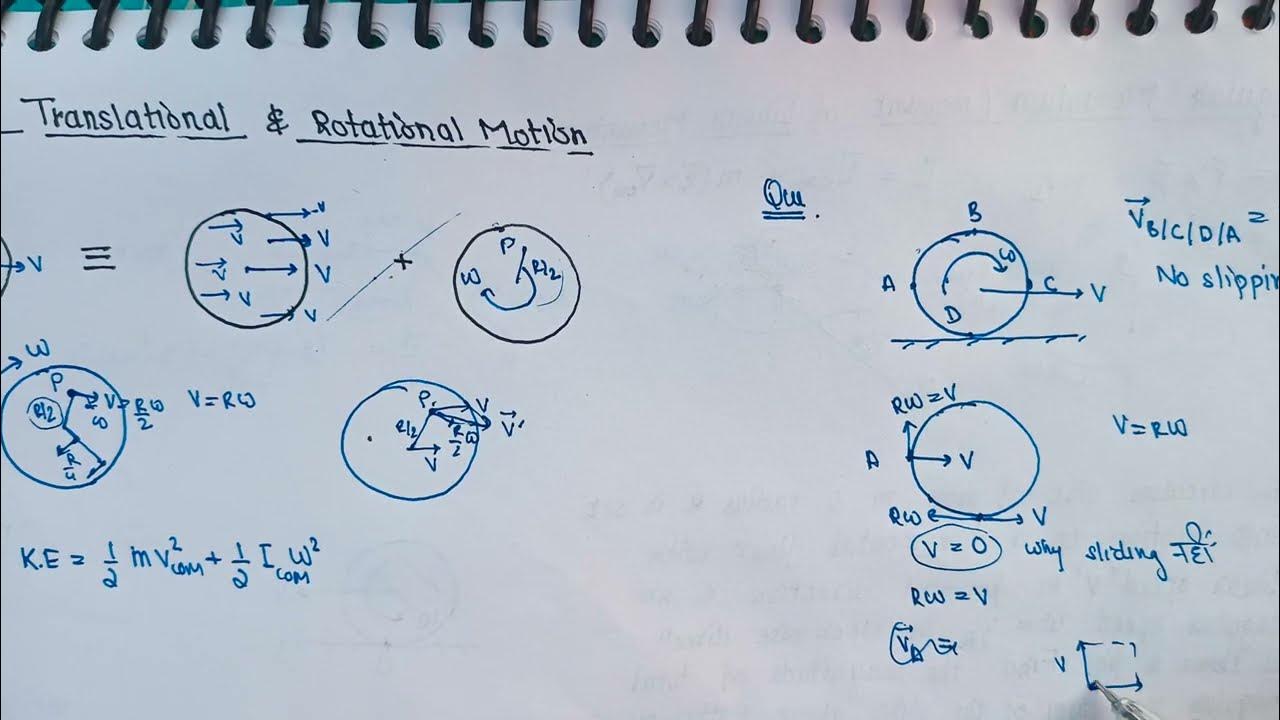 Translational & Rotational Motion
V
≡
V
V
V
V
V
V
V
V
+
P
R/2
ω
ω
P
R/2
V = Rω/2
ω
R/4
V = Rω
P
R/2
V
R/2 ω
V⃗'
V
K.E = 1/2 m V²COM + 1/2 I COM ω²
Que.
B
A
ω
C
V
D
V⃗B/C/D/A =
No slippin
Rω = V
A
V
V = Rω
Rω
V
V = 0
why sliding
Rω = V
V⃗A =
V